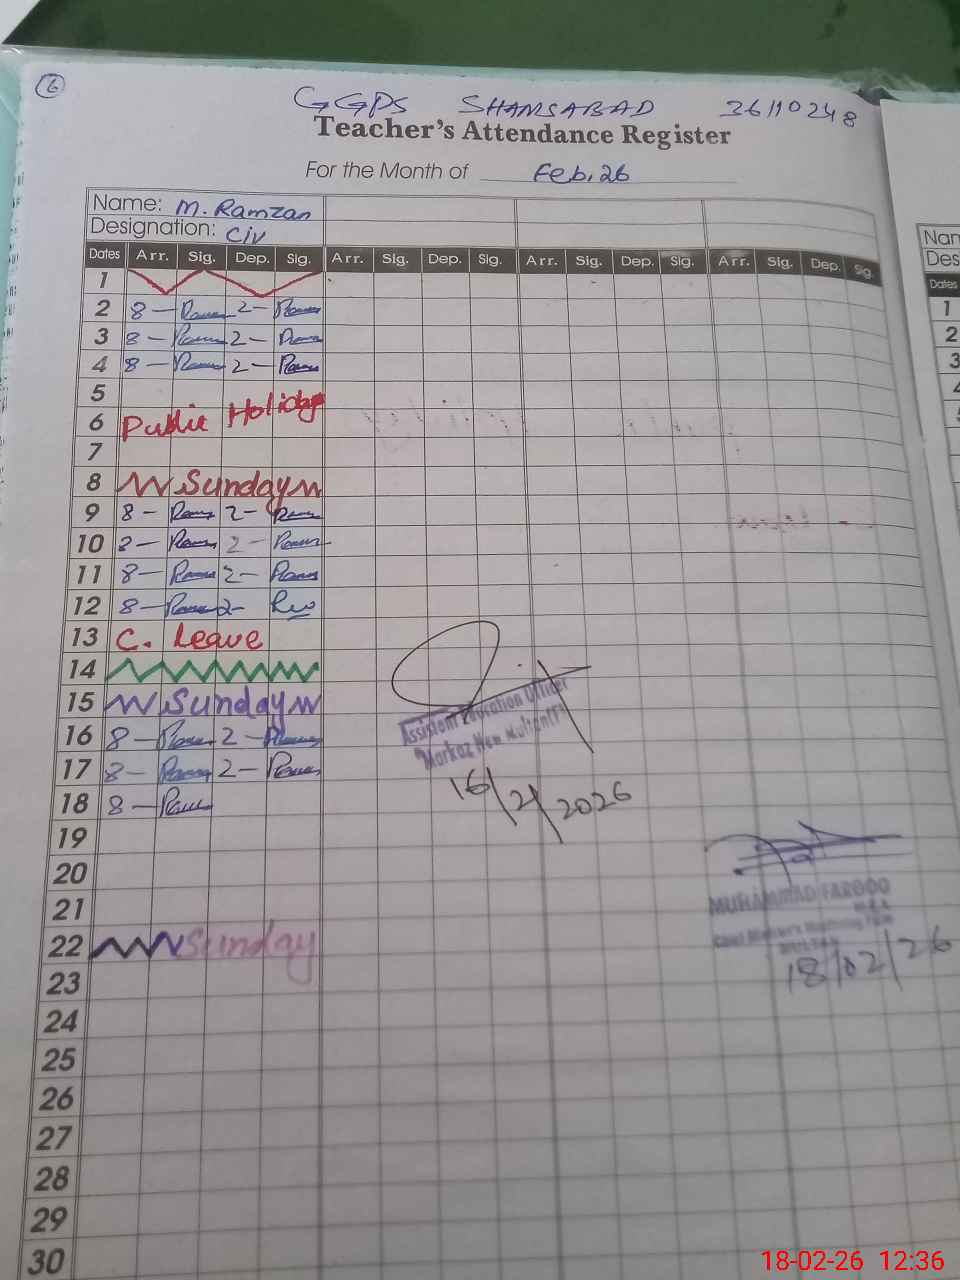 6
GGPS SHAMSABAD 36110248
Teacher's Attendance Register
For the Month of Feb. 26
Name: M. Ramzan
Designation: C/IV
Dates Arr. Sig. Dep. Sig. Arr. Sig. Dep. Sig. Arr. Sig. Dep. Sig. Arr. Sig. Dep. Sig.
1
2 8 — 2 —
3 8 — 2 —
4 8 — 2 —
5
6 Public Holiday
7
8 Sunday
9 8 — 2 —
10 8 — 2 —
11 8 — 2 —
12 8 — 2 —
13 C. Leave
14
15 Sunday
16 8 — 2 —
17 8 — 2 —
18 8 —
19
20
21
22 Sunday
23
24
25
26
27
28
29
30
Assistant Education Officer
Markaz New Multan (F)
16/2/2026
MUHAMMAD FAROOQ
18/02/26
Nam
Des
Dates
1
2
3
4
5
18-02-26 12:36